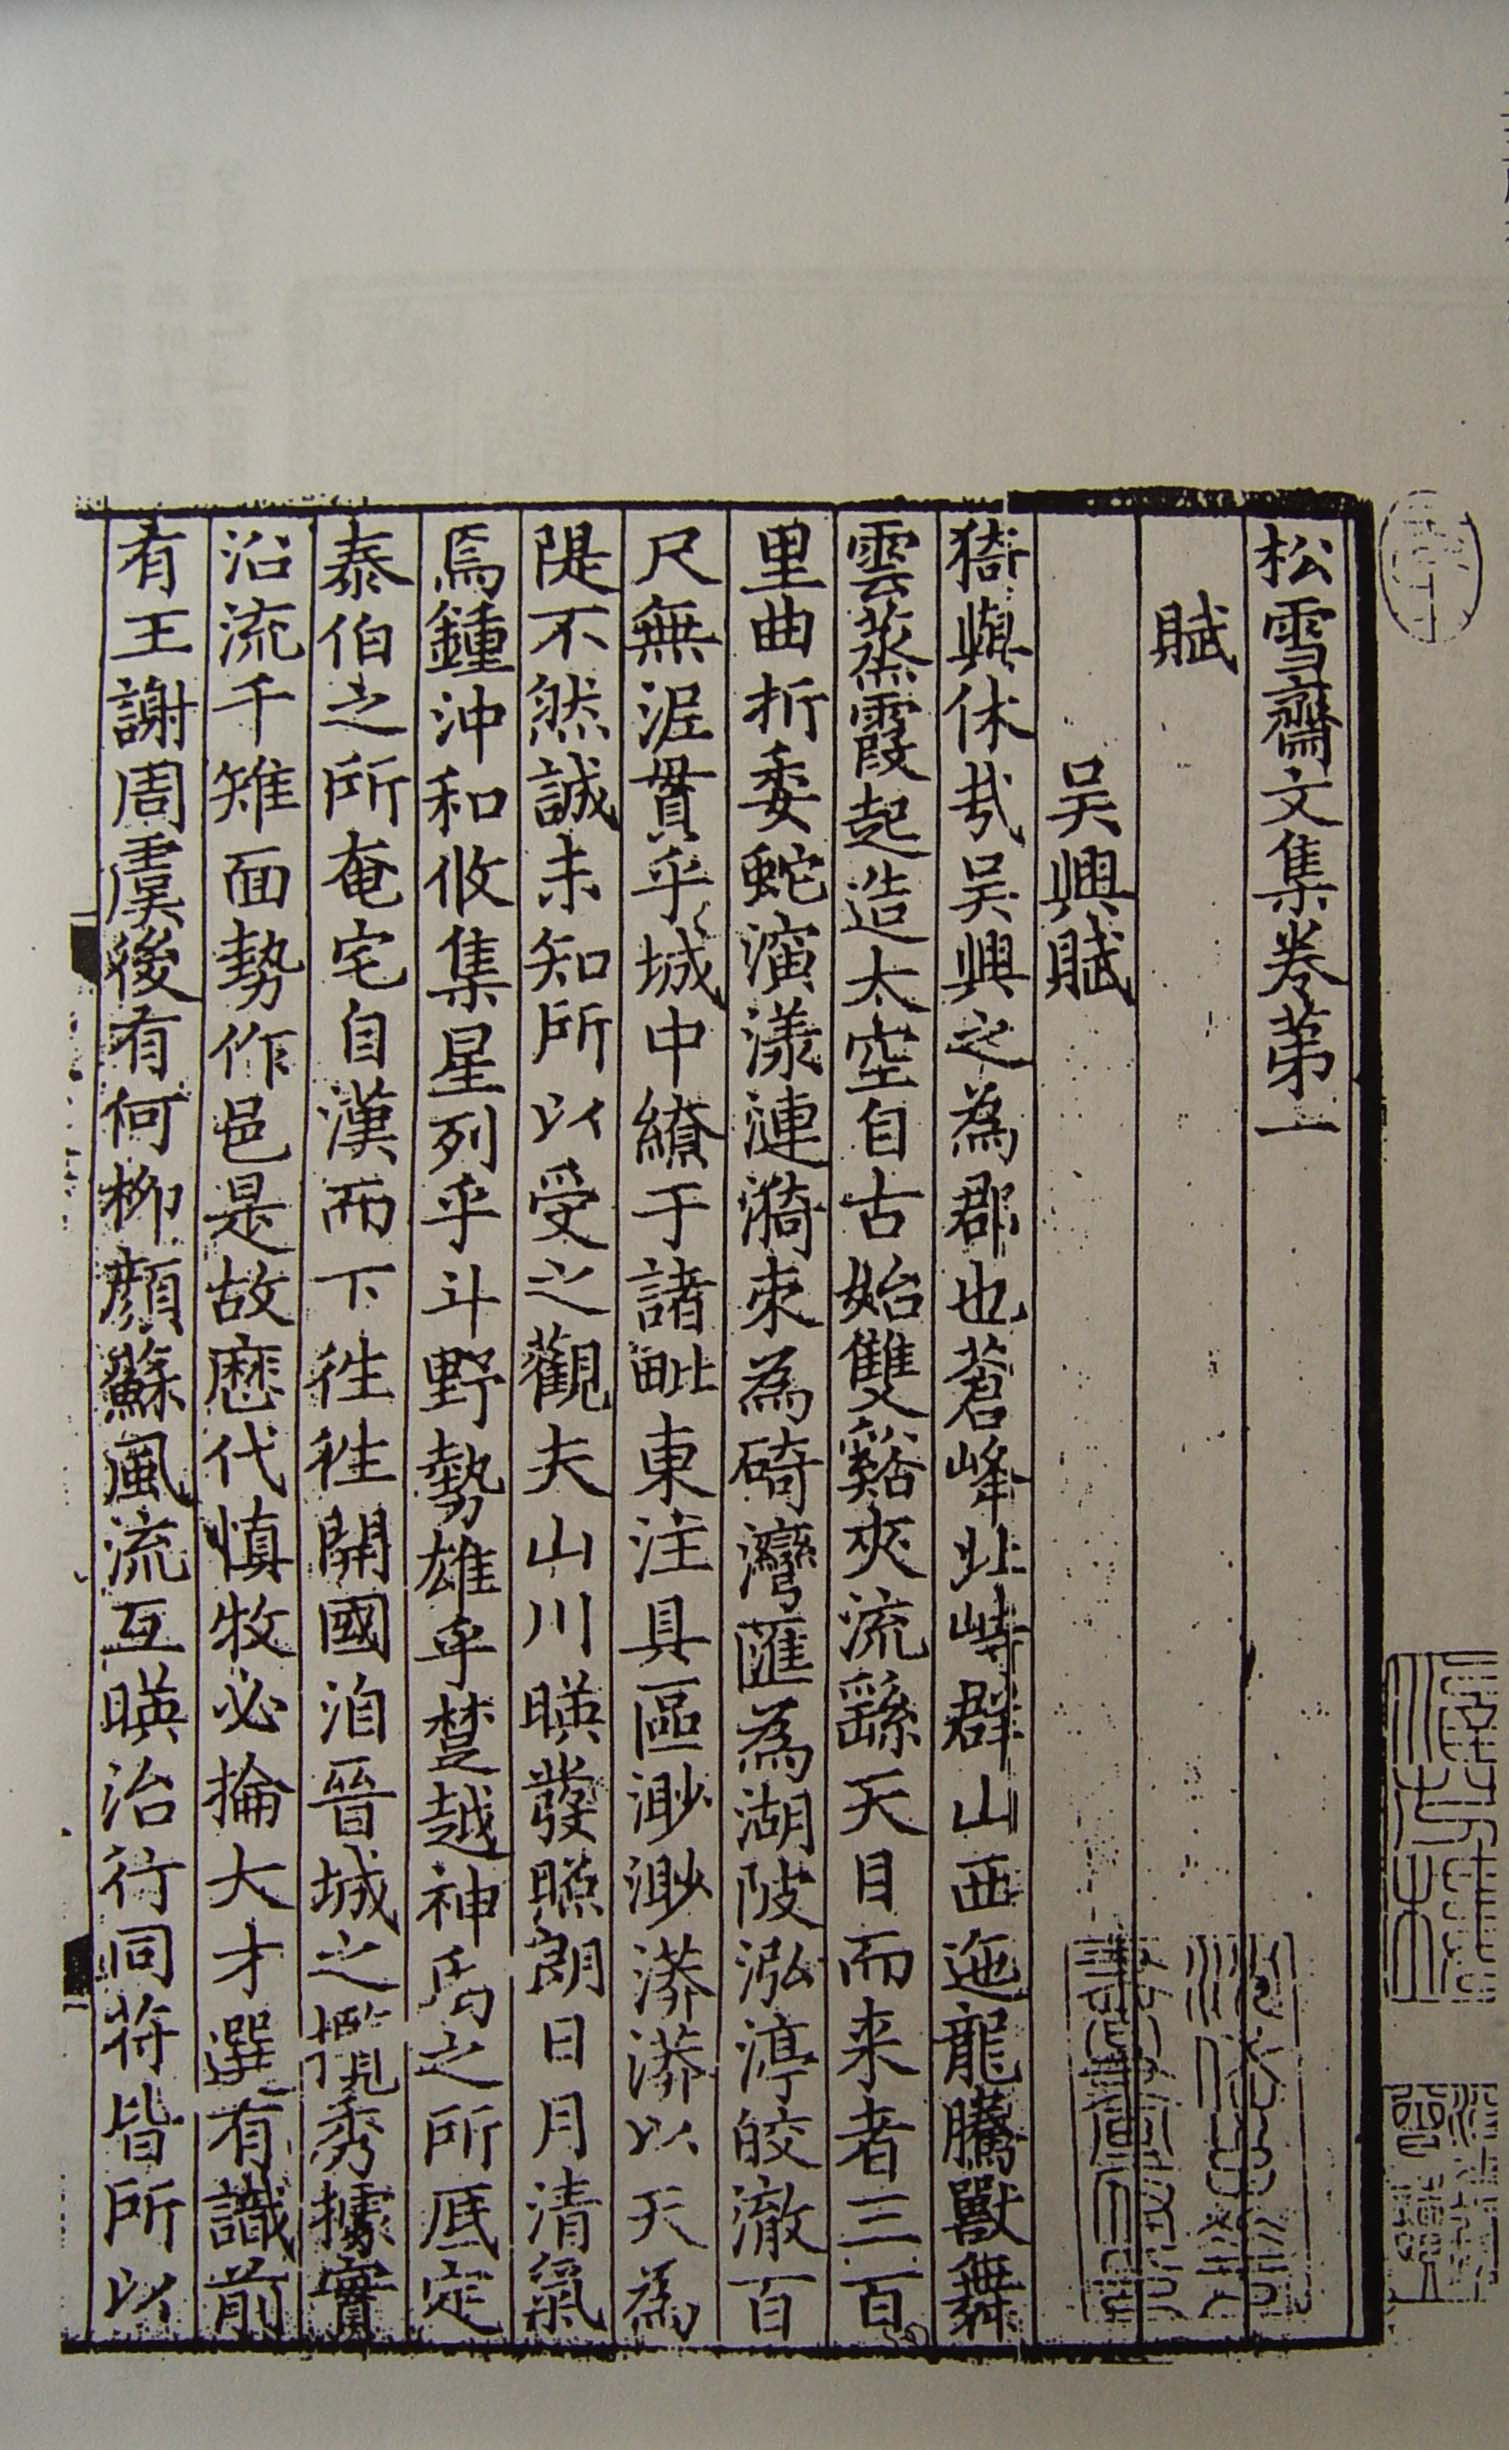 松雪齋文集卷第一
賦
吴興賦
猗歟休哉吴興之為郡也蒼峰北峙群山西迤龍騰獸舞
雲蒸霞起造太空自古始雙谿夾流繇天目而来者三百
里曲折委蛇演漾漣漪束為碕灣匯為湖陂泓渟皎澈百
尺無泥貫乎城中繚于諸毗東注具區渺渺漭漭以天為
隄不然誠未知所以受之觀夫山川暎發照朗日月清氣
焉鍾沖和攸集星列乎斗野勢雄乎楚越神禹之所底定
泰伯之所奄宅自漢而下徃徃開國洎晉城之㩜秀據實
沿流千雉面勢作邑是故歷代慎牧必掄大才選有識前
有王謝周虞後有何柳顔蘇風流互暎治行同符皆所以